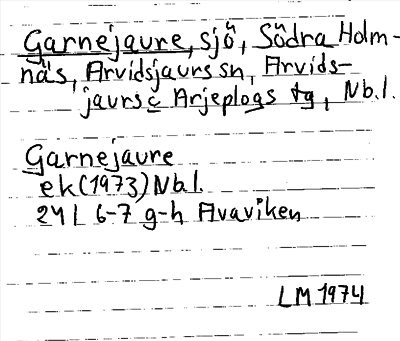 Garnejaure, sjö, Södra Holm-
näs, Arvidsjaurs sn, Arvids-
jaurs o Arjeplogs tg, Nb.l.
Garnejaure
ek(1973) Nb.l.
24 I 6-7 g-h Avaviken
LM 1974